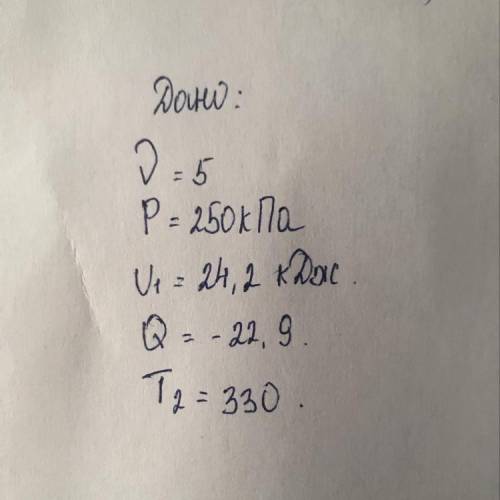 Дано:
ν = 5
P = 250 кПа
U₁ = 24,2 кДж.
Q = - 22,9.
T₂ = 330.